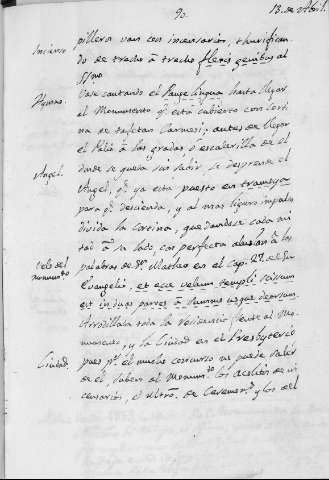 90.
13. de Abril.
Incienso
pillero van con incensarios, thurifican
do de trecho à trecho flexis genibus al
SSmo
Hymno.
Vase cantando el Pange lingua hasta llegar
al Monumento q.e està cubierto con Corti
na de tafetan Carmesi; antes de llegar
el Palio à las gradas ò escalerilla de el
Angel.
donde se queda sin subir, se desprende el
Angel, q.e ya esta puesto en tramoya
para q.e descienda, y al mas ligero impulso
divida la Cortina, quedandose cada mi
tad à su lado, con perfecta alusion à las
velo del monumto
palabras de Sn. Matheo en el Cap. 27. de su
Evangelio, et ecce velum templi scissum
est in duas partes à summo usque deorsum.
Arrodillase toda la Residencia frente al Mo-
numento, y la Ciudad en el Presbyterio
Ciudad.
pues pr. el mucho concurso no puede salir
de èl, suben al Monum.to los acolitos de in
censarios, el Mtro. de Ceremon.s y los del